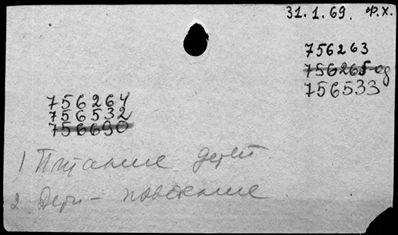 31.1.69. Ф.Х.
756263
756265 од
756533
756264
756532
756690
1 Питание детей
2 Дети - поведение